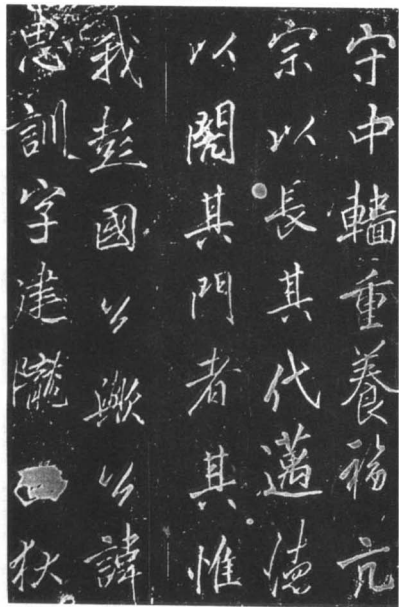 守中輜重養福亢
宗以長其代邁德
以閎其門者其惟
我彭國公歟公諱
思訓字建隴西狄